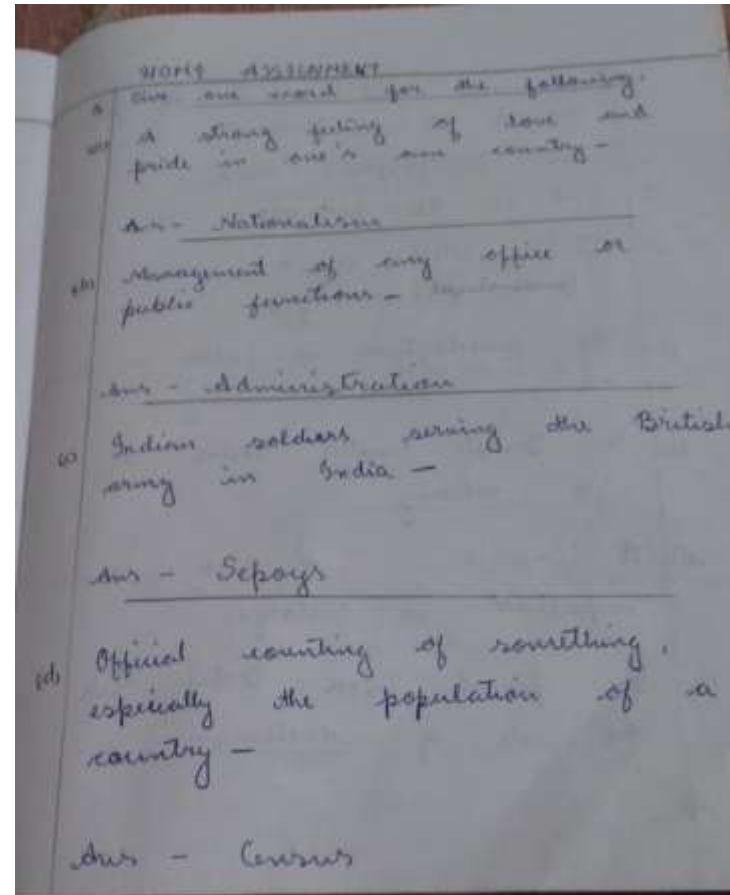 HOME ASSIGNMENT
Give one word for the following.
(a) A strong feeling of love and
pride in one's own country -
Ans - Nationalism
(b) Management of any office or
public functions -
Ans - Administration
(c) Indian soldiers serving the British
army in India -
Ans - Sepoys
(d) Official counting of something,
especially the population of a
country -
Ans - Census